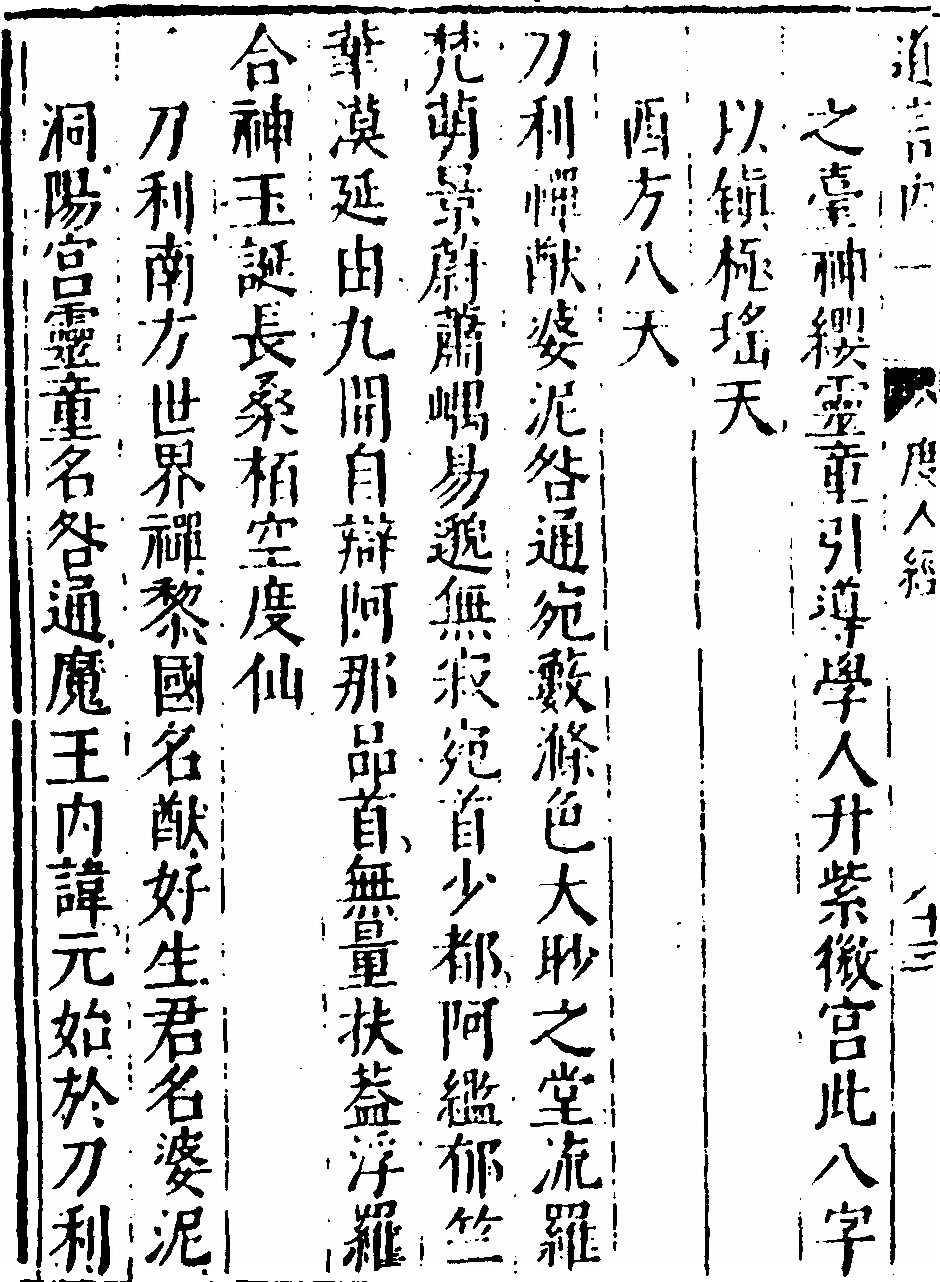 道言内一 度人經 十三
之臺神纓靈童引導學人升紫微宮此八字
以鎮極瑤天
酉方八天
刀利憚猷婆泥咎通宛藪滌色大眇之堂流羅
梵萌景蔚蕭嵎易邈無寂宛首少都阿纜郁竺
華漠延由九開自辯阿那品首無量扶葢浮羅
合神玉誕長桑栢空度仙
刀利南方世界禪黎國名猷好生君名婆泥
洞陽宮靈童名咎通魔王内諱元始於刀利